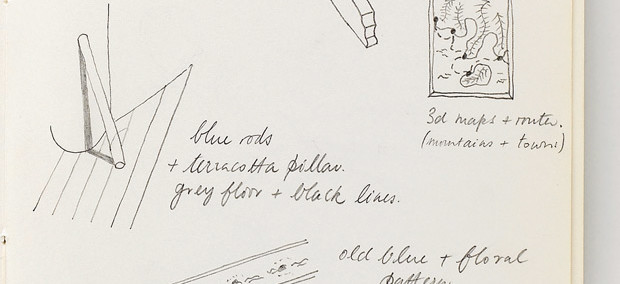 3d maps + router.
(mountains + towns)
blue rods
+ terracotta pillar.
grey floor + black lines.
old blue + floral
pattern